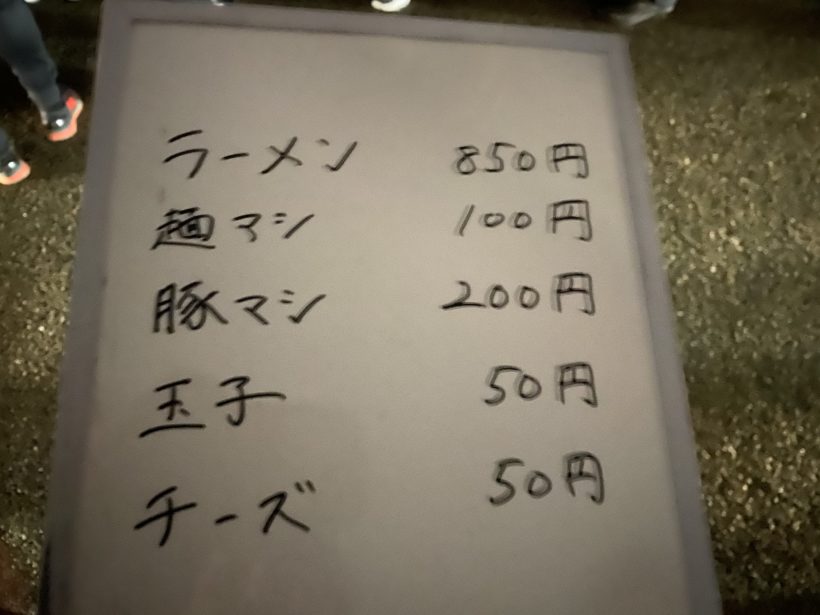 ラーメン 850円
麺マシ 100円
豚マシ 200円
玉子 50円
チーズ 50円